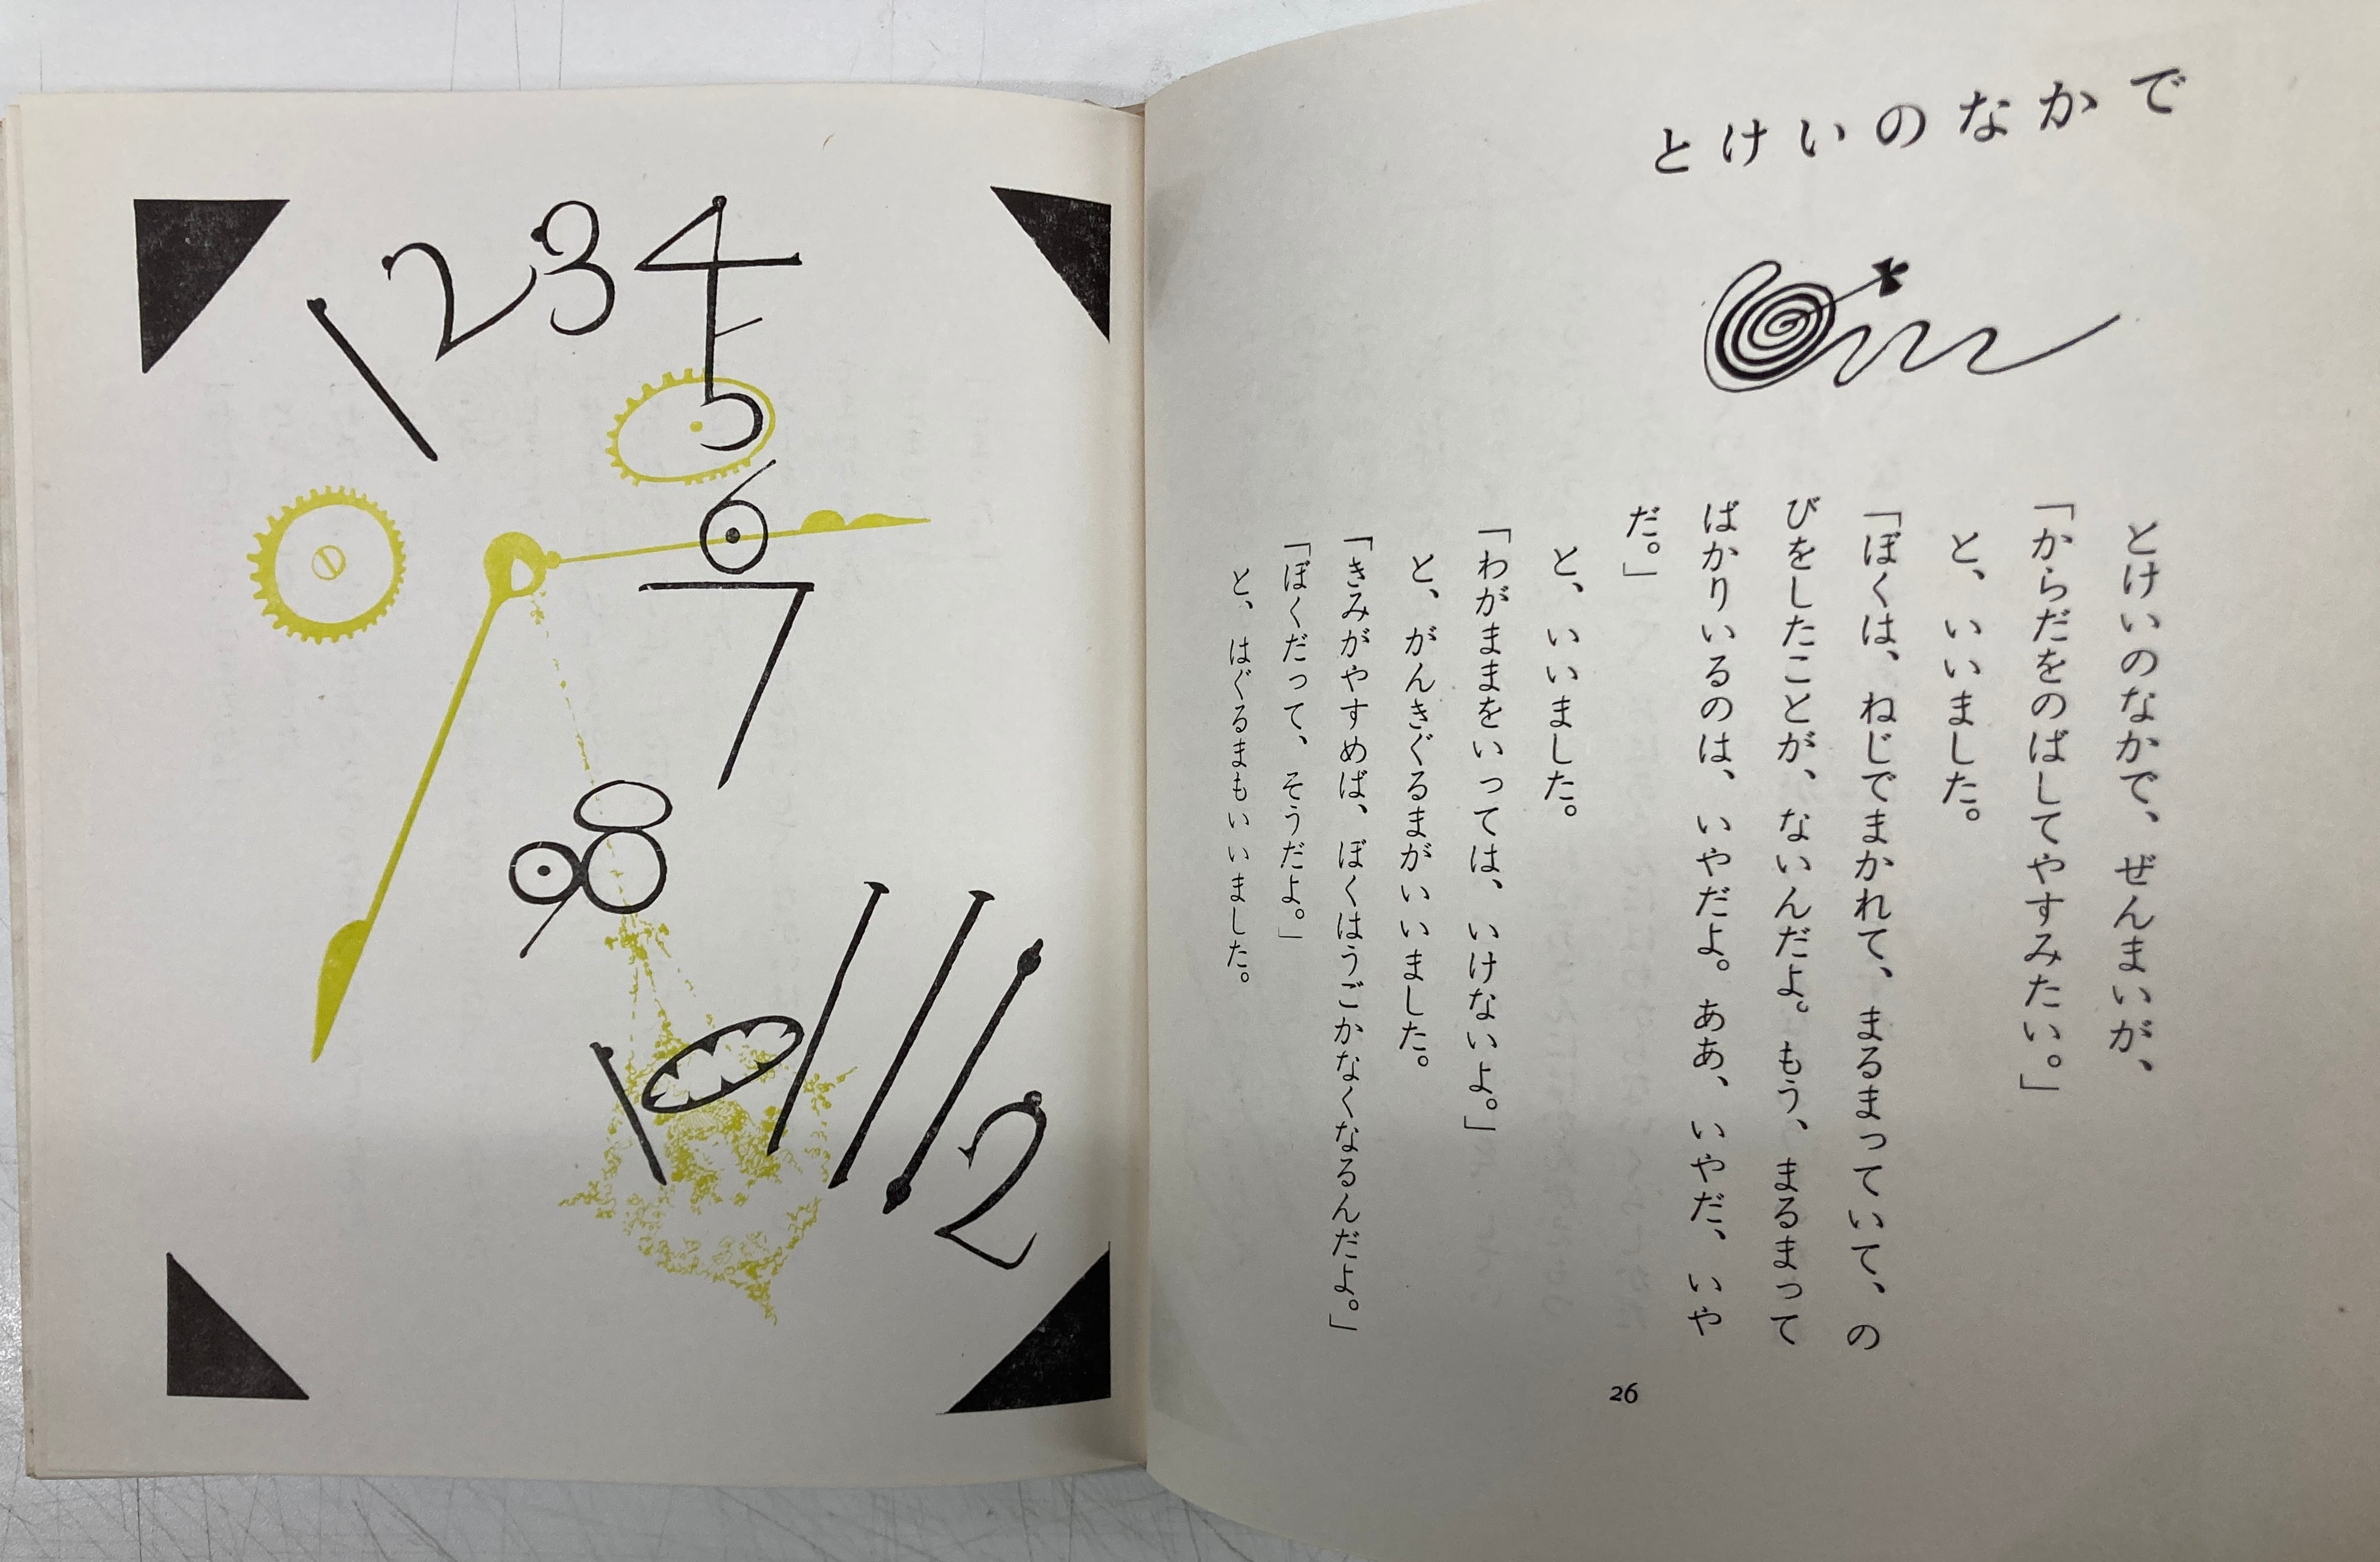 とけいのなかで
とけいのなかで、ぜんまいが、
「からだをのばしてやすみたい。」
と、いいました。
「ぼくは、ねじでまかれて、まるまっていて、の
びをしたことが、ないんだよ。もう、まるまって
ばかりいるのは、いやだよ。ああ、いやだ、いや
だ。」
と、いいました。
「わがままをいっては、いけないよ。」
と、がんきぐるまがいいました。
「きみがやすめば、ぼくはうごかなくなるんだよ。」
「ぼくだって、そうだよ。」
と、はぐるまもいいました。
26
1 2 3 4
5
6
7
8
9
10
11
12